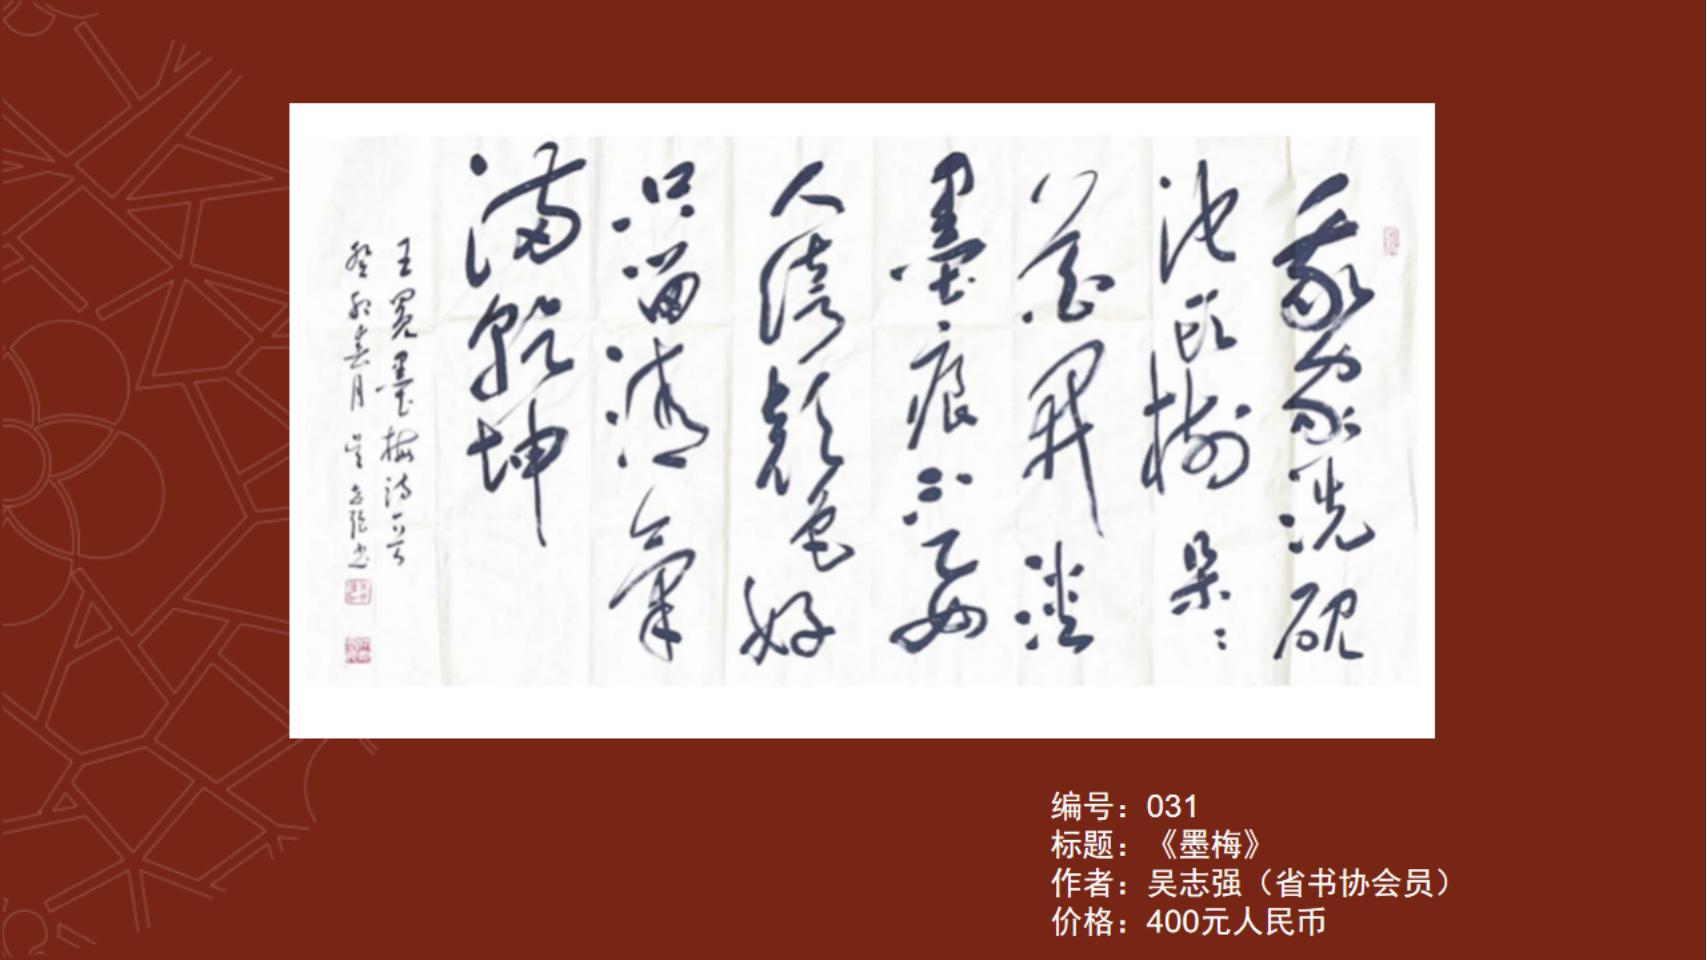 我家洗硯
池頭樹朵々
花開淡
墨痕不要
人誇顏色好
只留清氣
滿乾坤
王冕墨梅詩一首
癸卯春月吴志强书
编号：031
标题：《墨梅》
作者：吴志强（省书协会员）
价格：400元人民币